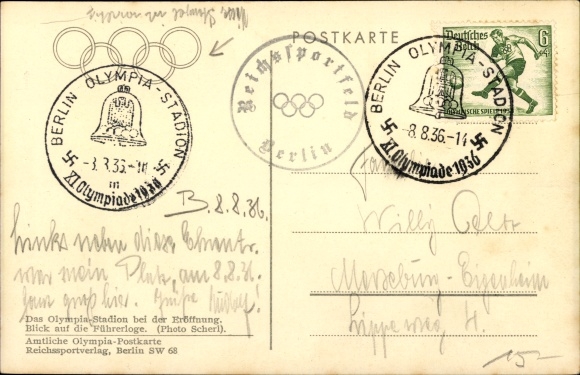 POSTKARTE
Deutsches Reich
6+4
OLYMPISCHE SPIELE 1936
BERLIN OLYMPIA-STADION
8.8.36.-14
XI. Olympiade 1936
Reichssportfeld
Berlin
BERLIN OLYMPIA-STADION
in
XI. Olympiade 1936
B. 8.8.36.
Links neben dieser
war mein Platz, am 8.8.36.
Ganz groß hier. Rudolf!
Willy
Merseburg-Eigenheim
Lippeweg 4.
Das Olympia-Stadion bei der Eröffnung.
Blick auf die Führerloge. (Photo Scherl).
Amtliche Olympia-Postkarte
Reichssportverlag, Berlin SW 68
15-